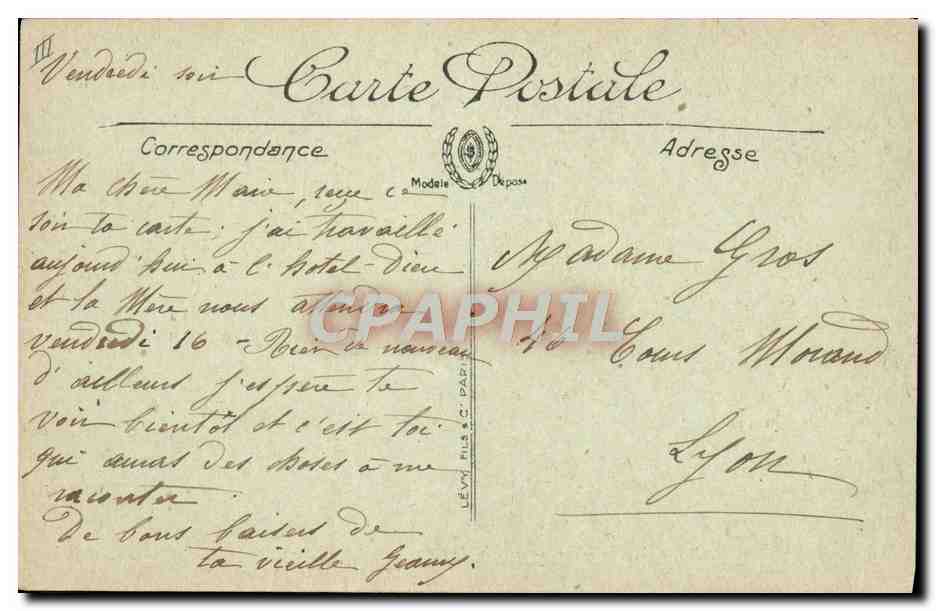 III
Vendredi soir
Carte Postale
Correspondance
Adresse
Modele Déposé
Ma chère Marie, reçu ce
soir ta carte; j'ai travaillé
aujourd'hui à l'hotel-Dieu
et la Mère nous attendra
vendredi 16 - Rien de nouveau
d'ailleurs j'espère te
voir bientôt et c'est toi
qui auras des choses à me
raconter.
De bons baisers de
ta vieille
Madame Gros
Cours Morand
Lyon
LÉVY FILS & Cie PARIS
CPAPHIL